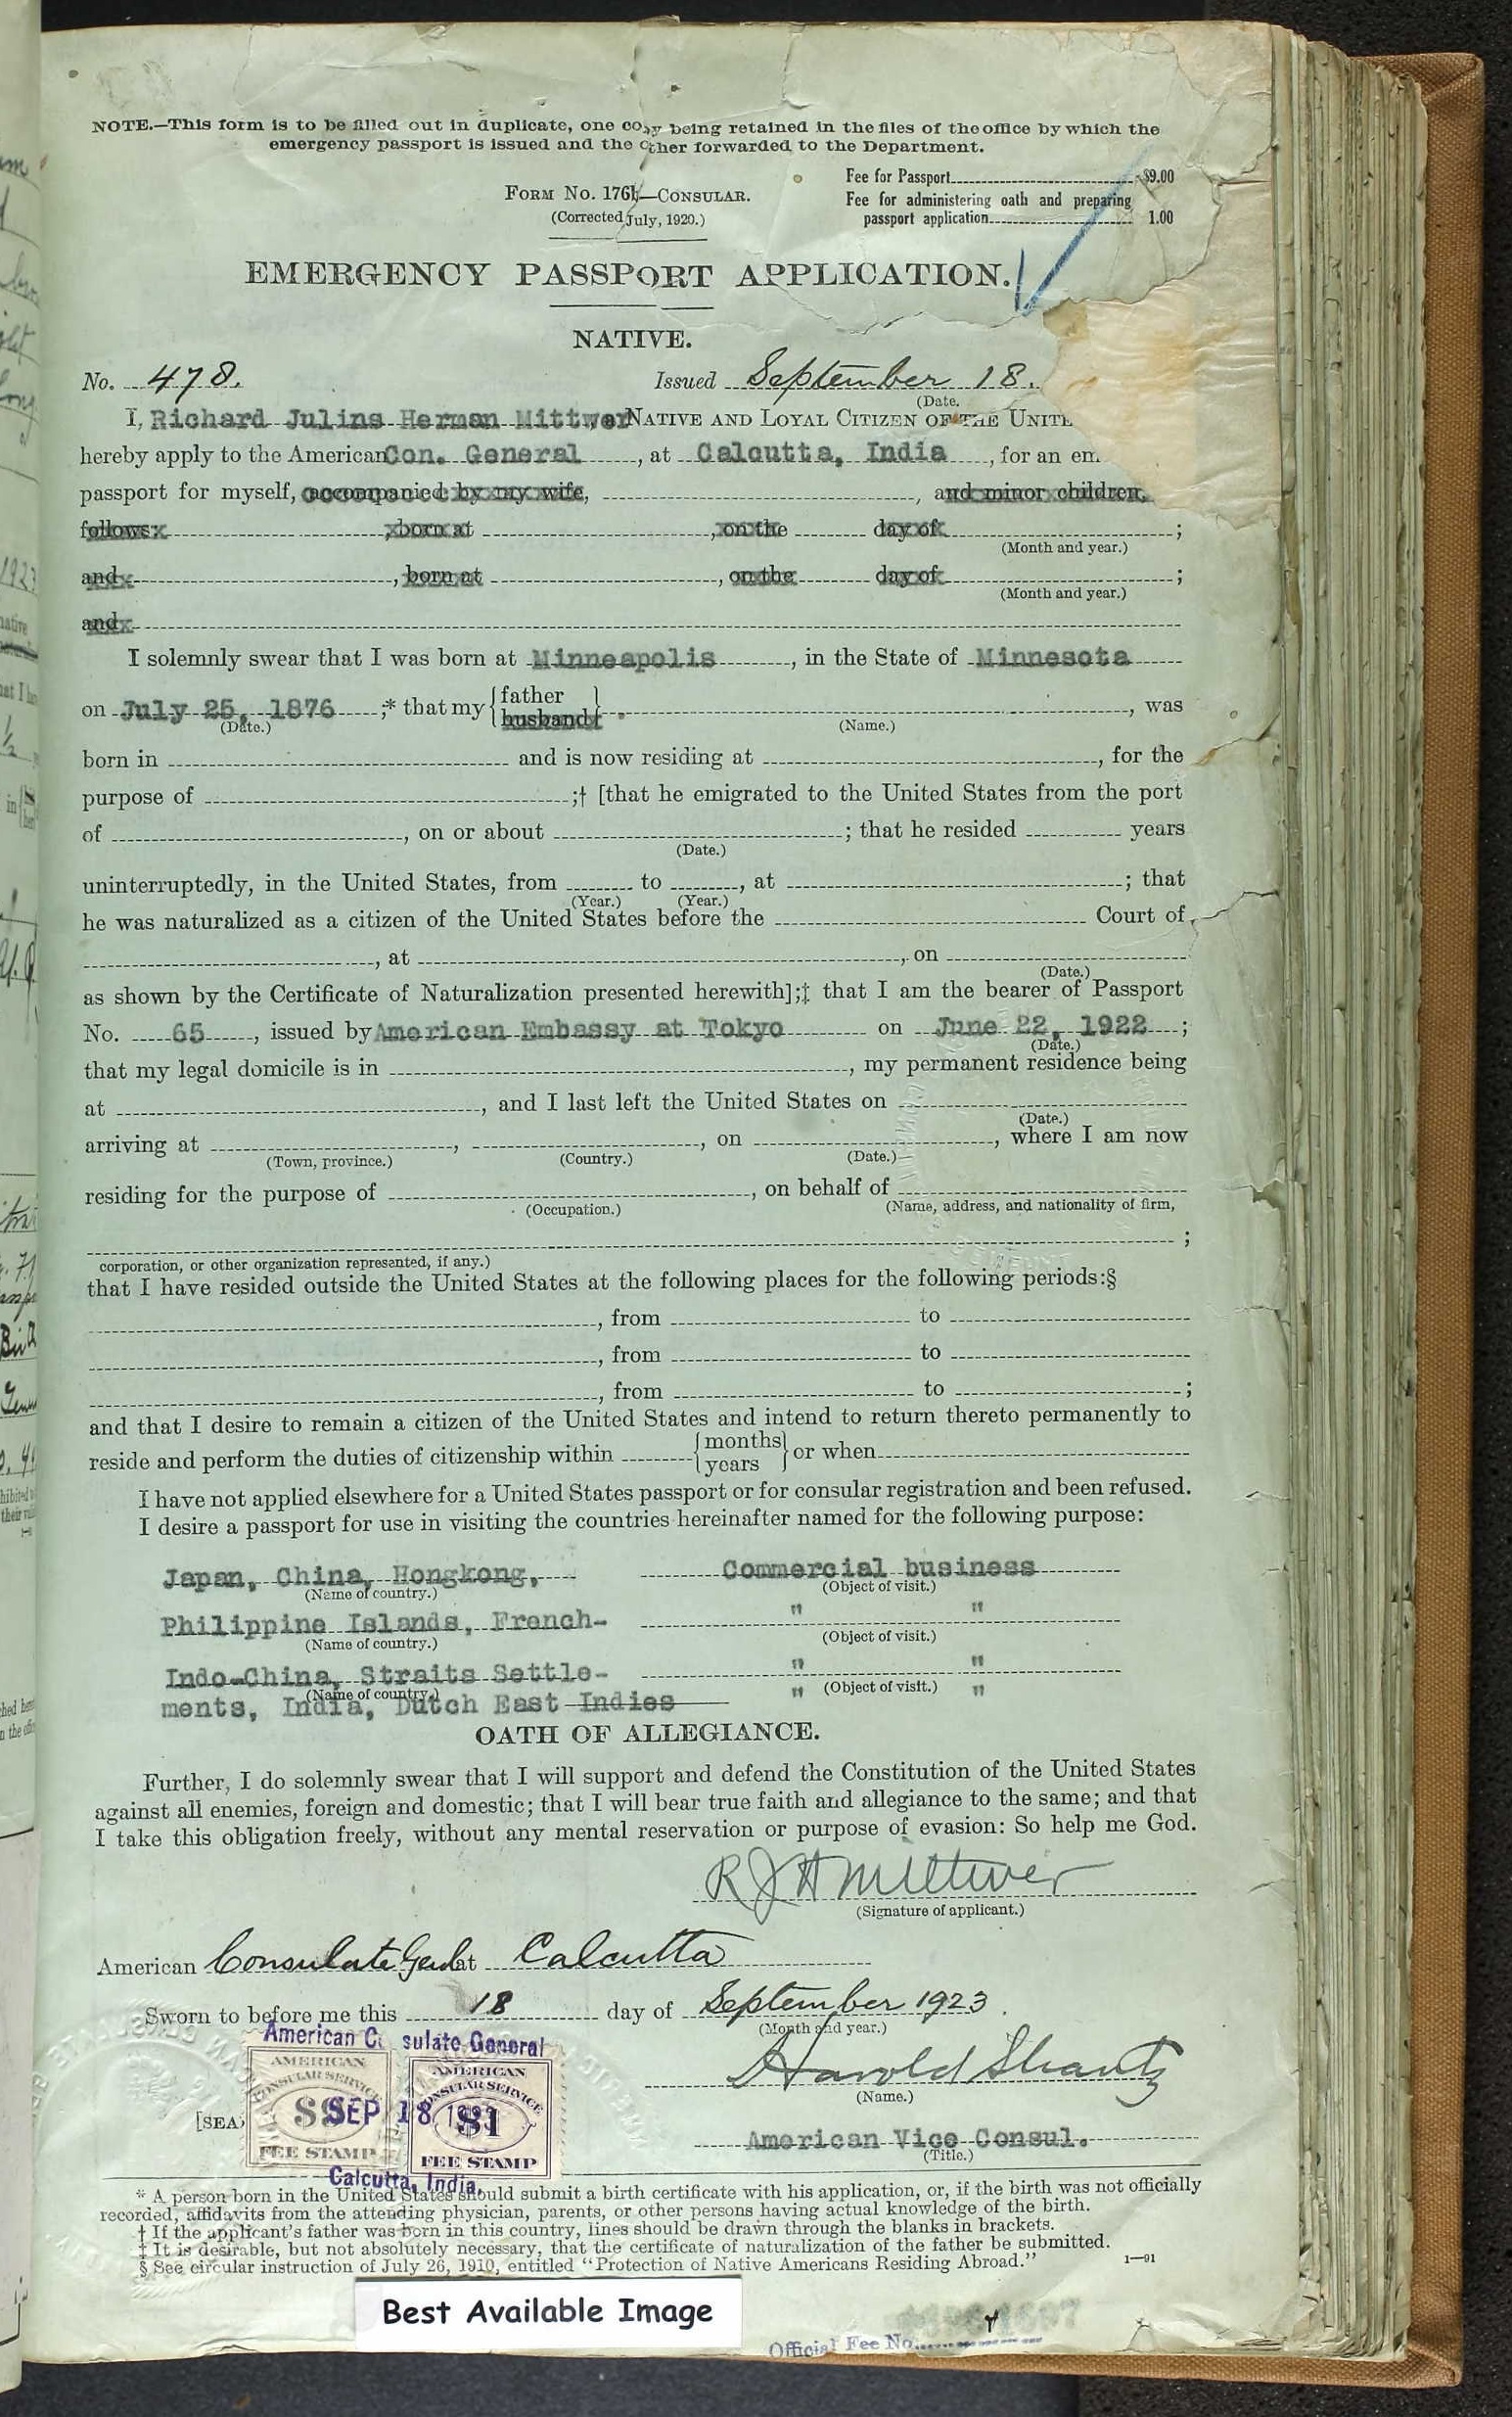 NOTE.—This form is to be filled out in duplicate, one copy being retained in the files of the office by which the
emergency passport is issued and the other forwarded to the Department.
FORM No. 176½—CONSULAR.
(Corrected July, 1920.)
Fee for Passport $9.00
Fee for administering oath and preparing
passport application 1.00
EMERGENCY PASSPORT APPLICATION.
NATIVE.
No. 478. Issued September 18.
(Date.
I, Richard Julins Herman Mittwer, a NATIVE AND LOYAL CITIZEN OF THE UNITE
hereby apply to the American Con. General, at Calcutta, India, for an em
passport for myself, accompanied by my wife, , and minor children,
follows: , born at , on the day of ;
(Month and year.)
and , born at , on the day of ;
(Month and year.)
and
I solemnly swear that I was born at Minneapolis, in the State of Minnesota
on July 25, 1876 ;* that my {father husband} , was
(Date.) (Name.)
born in and is now residing at , for the
purpose of ;† [that he emigrated to the United States from the port
of , on or about ; that he resided years
(Date.)
uninterruptedly, in the United States, from to , at ; that
(Year.) (Year.)
he was naturalized as a citizen of the United States before the Court of
, at , on
(Date.)
as shown by the Certificate of Naturalization presented herewith];‡ that I am the bearer of Passport
No. 65, issued by American Embassy at Tokyo on June 22, 1922;
(Date.)
that my legal domicile is in , my permanent residence being
at , and I last left the United States on
(Date.)
arriving at , , on , where I am now
(Town, province.) (Country.) (Date.)
residing for the purpose of , on behalf of
(Occupation.) (Name, address, and nationality of firm,
;
corporation, or other organization represented, if any.)
that I have resided outside the United States at the following places for the following periods:§
, from to
, from to
, from to ;
and that I desire to remain a citizen of the United States and intend to return thereto permanently to
reside and perform the duties of citizenship within {months years} or when
I have not applied elsewhere for a United States passport or for consular registration and been refused.
I desire a passport for use in visiting the countries hereinafter named for the following purpose:
Japan, China, Hongkong, Commercial business
(Name of country.) (Object of visit.)
Philippine Islands, French- " "
(Name of country.) (Object of visit.)
Indo-China, Straits Settle- " "
(Name of country.) (Object of visit.)
ments, India, Dutch East Indies " "
OATH OF ALLEGIANCE.
Further, I do solemnly swear that I will support and defend the Constitution of the United States
against all enemies, foreign and domestic; that I will bear true faith and allegiance to the same; and that
I take this obligation freely, without any mental reservation or purpose of evasion: So help me God.
R J H Mittwer
(Signature of applicant.)
American Consulate Genl at Calcutta
Sworn to before me this 18 day of September 1923.
(Month and year.)
American C sulate General
AMERICAN CONSULAR SERVICE $9 FEE STAMP
AMERICAN CONSULAR SERVICE $1 FEE STAMP
SEP 18 1923
Calcutta, India.
[SEA
Harold Shantz
(Name.)
American Vice Consul.
(Title.)
* A person born in the United States should submit a birth certificate with his application, or, if the birth was not officially
recorded, affidavits from the attending physician, parents, or other persons having actual knowledge of the birth.
† If the applicant's father was born in this country, lines should be drawn through the blanks in brackets.
‡ It is desirable, but not absolutely necessary, that the certificate of naturalization of the father be submitted.
§ See circular instruction of July 26, 1910, entitled "Protection of Native Americans Residing Abroad." 1—91
Best Available Image
Official Fee No.